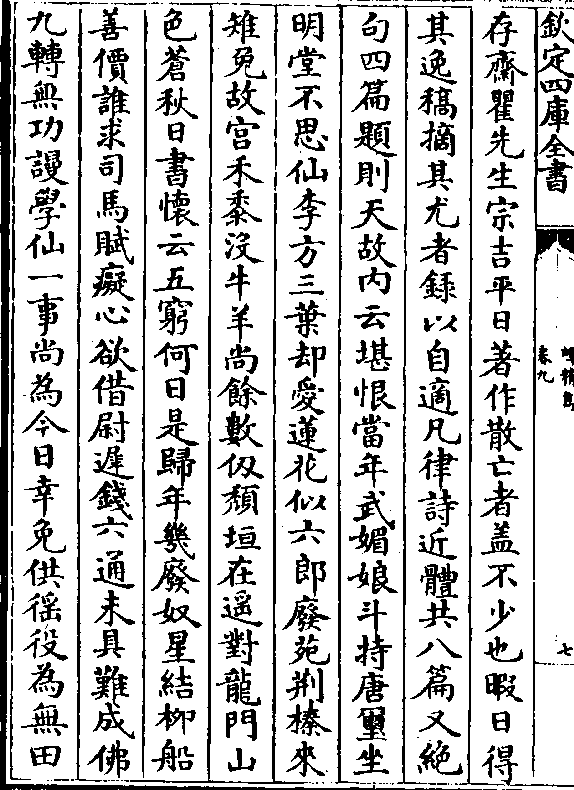 欽定四庫全書
卷九
七
存齋瞿先生宗吉平日著作散亡者盖不少也暇日得
其逸稿摘其尤者錄以自適凡律詩近體共八篇又絶
句四篇題則天故内云堪恨當年武媚娘斗持唐璽坐
明堂不思仙李方三葉却愛蓮花似六郎廢苑荆榛來
雉兔故宫禾黍沒牛羊尚餘數仭頽垣在遥對龍門山
色蒼秋日書懷云五窮何日是歸年幾廢奴星結柳船
善價誰求司馬賦癡心欲借尉遲錢六通未具難成佛
九轉無功謾學仙一事尚為今日幸免供徭役為無田